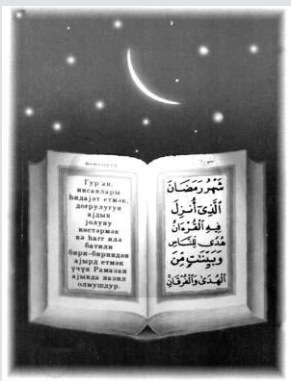 Гур'ан,
инсанлары
һидајәт етмәк,
доғрулуғун
ајдын
јолуну
көстәрмәк
вә һагг илә
батили
бири-бириндән
ајырд етмәк
үчүн Рамазан
ајында назил
олмушдур.
شَهْرُ رَمَضَانَ
الَّذِىٓ أُنزِلَ
فِيهِ الْقُرْءَانُ
هُدًى لِّلنَّاسِ
وَبَيِّنَٰتٍ مِّنَ
الْهُدَىٰ وَالْفُرْقَانِ